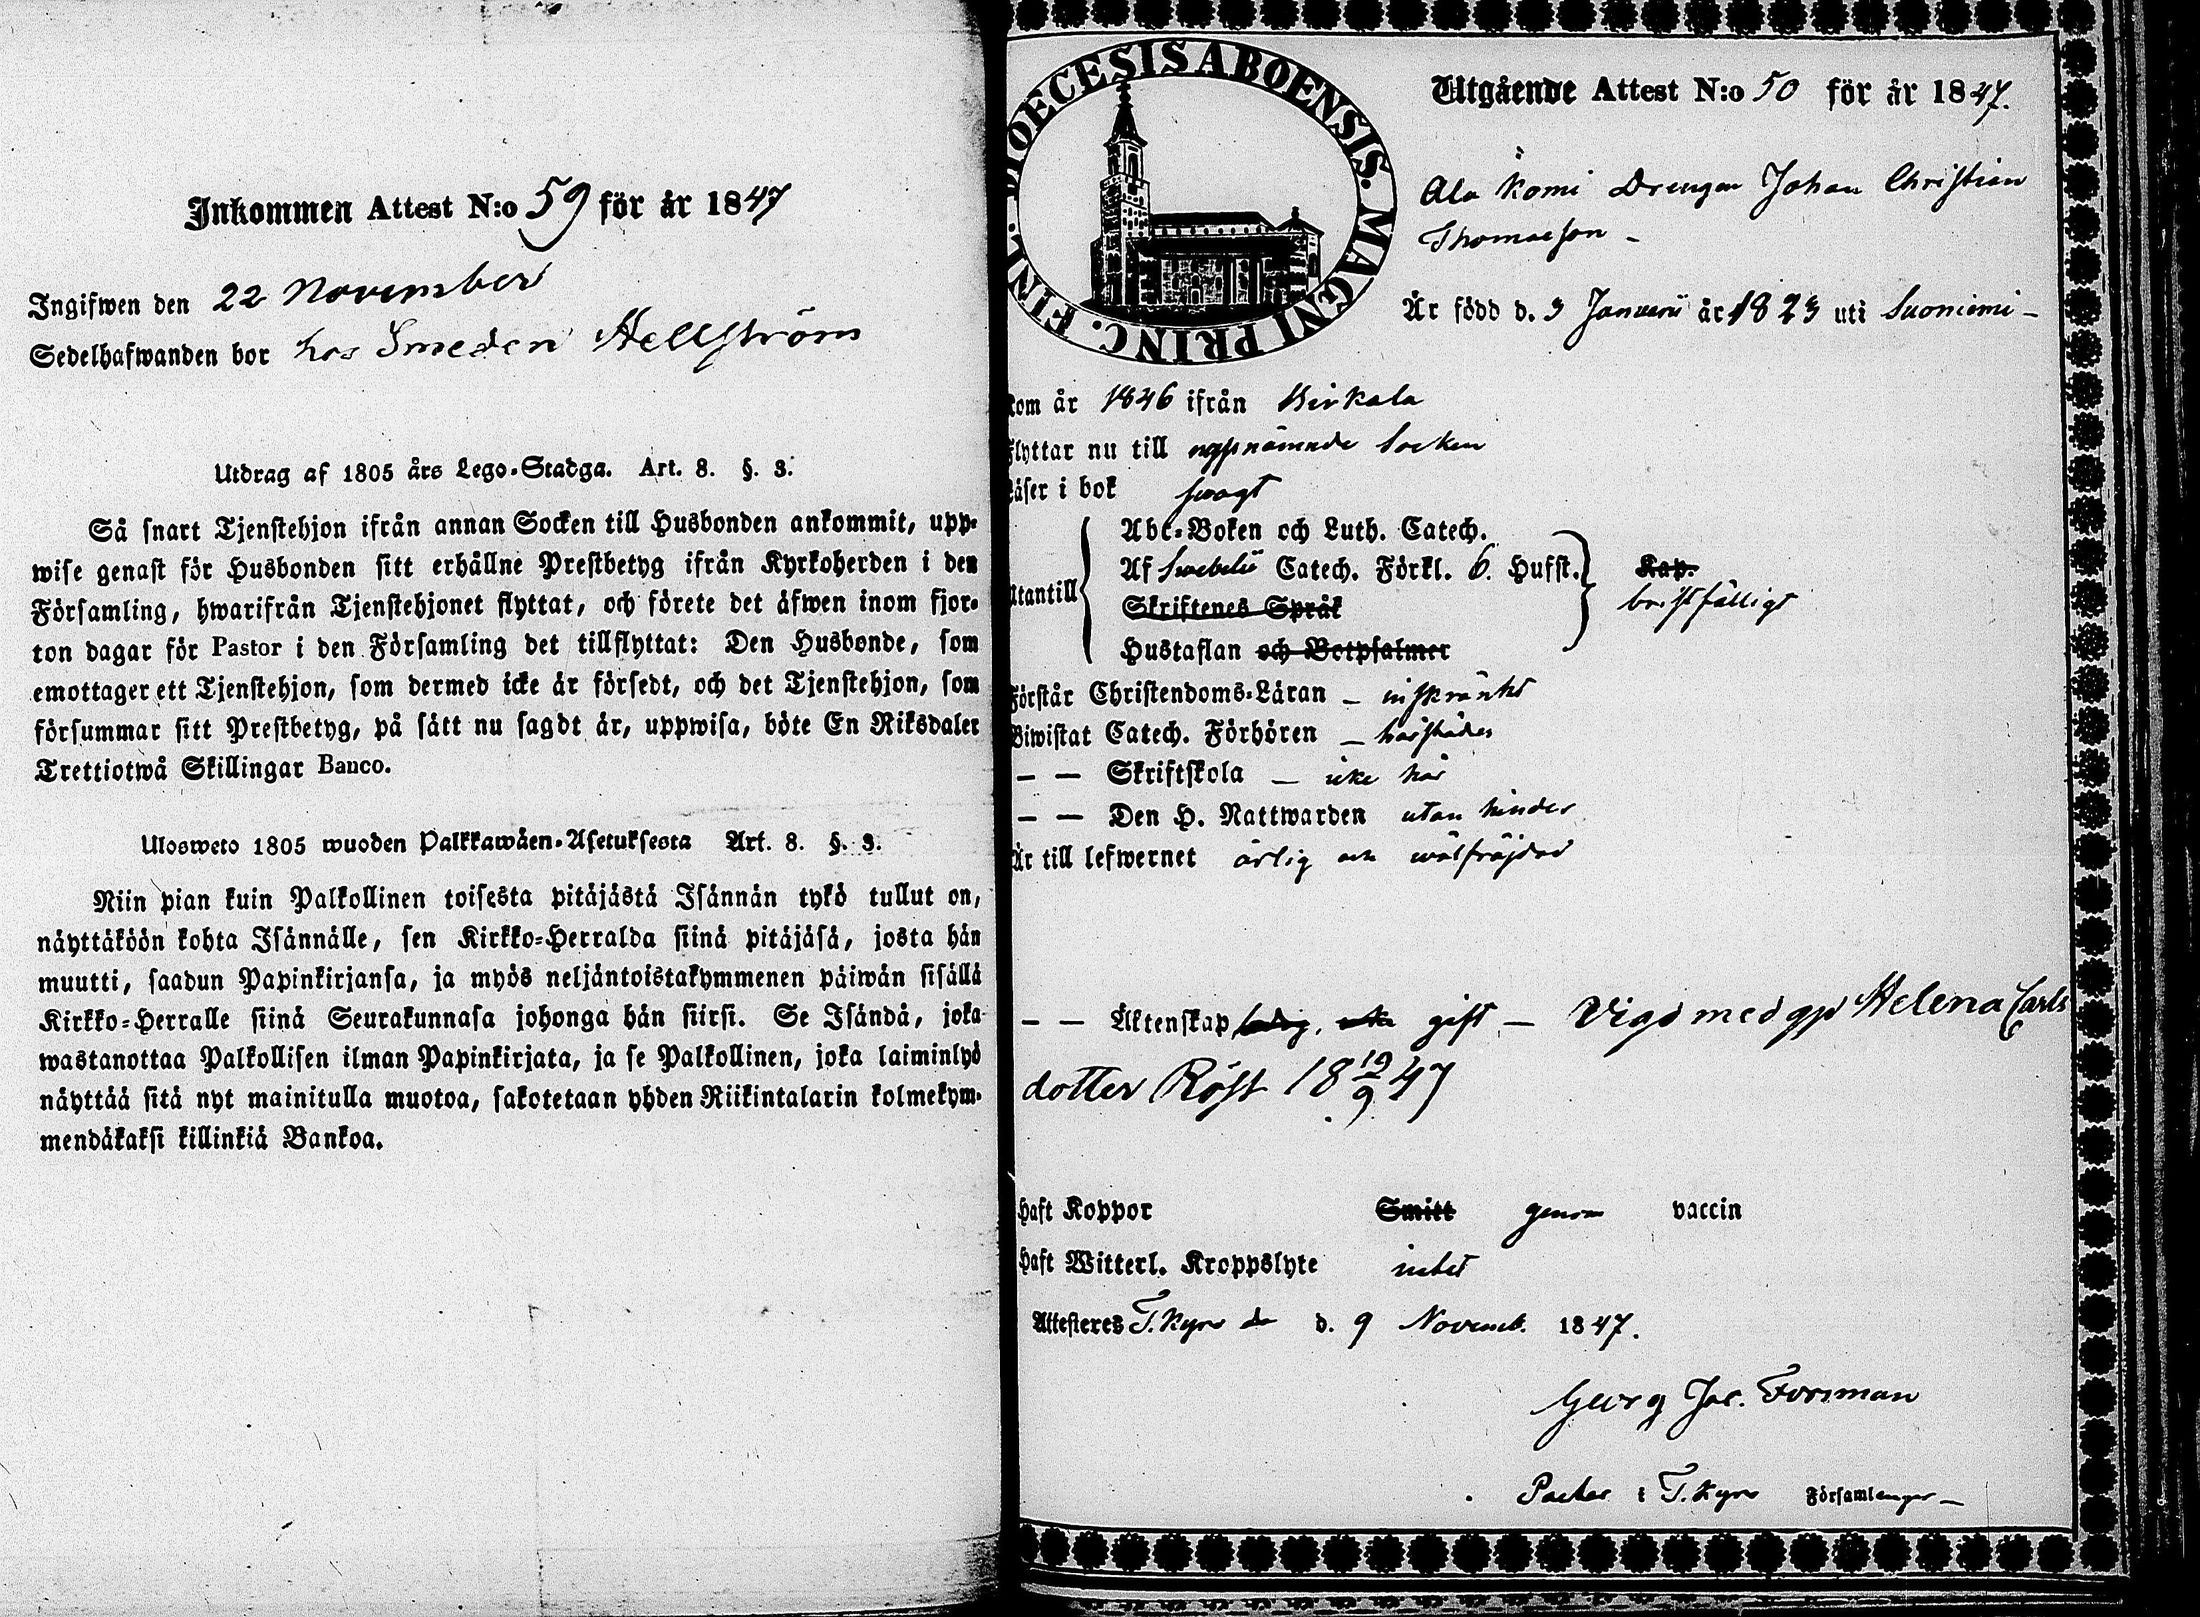 Inkommen Attest N:o 59 för år 1847
Ingifwen den 22 November
Sedelhafwanden bor hos Smeden Hellström
Utdrag af 1805 års Lego-Stadga. Art. 8. §. 3.
Så snart Tjenstehjon ifrån annan Socken till Husbonden ankommit, upp-
wise genast för Husbonden sitt erhållne Prestbetyg ifrån Kyrkoherden i den
Församling, hwarifrån Tjenstehjonet flyttat, och förete det äfwen inom fjor-
ton dagar för Pastor i den Församling det tillflyttat: Den Husbonde, som
emottager ett Tjenstehjon, som dermed icke är försedt, och det Tjenstehjon, som
försummar sitt Prestbetyg, på sätt nu sagdt är, uppwisa, böte En Riksdaler
Trettiotwå Skillingar Banco.
Ulosweto 1805 wuoden Palkkawäen-Asetuksesta Art. 8. §. 3.
Niin pian kuin Palkollinen toisesta pitäjästä Isännän tykö tullut on,
näyttäköön kohta Isännälle, sen Kirkko-Herralda siinä pitäjäsä, josta hän
muutti, saadun Papinkirjansa, ja myös neljäntoistakymmenen päiwän sisällä
Kirkko-Herralle siinä Seurakunnasa johonga hän siirsi. Se Isändä, joka
wastanottaa Palkollisen ilman Papinkirjata, ja se Palkollinen, joka laiminlyö
näyttää sitä nyt mainitulla muotoa, sakotetaan yhden Riikintalarin kolmekym-
mendäkaksi killinkiä Bankoa.
DIOECESIS ABOENSIS. MAGNI PRINC. FINL.
Utgående Attest N:o 50 för år 1847.
Ala Komi Drengen Johan Christian
Thomasson -
Är född d. 3 Januarii år 1823 uti Suoniemi -
kom år 1846 ifrån Birkala
Flyttar nu till uppnämnde Socken
Läser i bok swagt
Utantill
Abc-Boken och Luth. Catech.
Af Swebelii Catech. Förkl. 6. Hufst. Kap.
Skriftenes Språk bristfälligt
Hustaflan och Botpsalmer
Förstår Christendoms-Läran - inskränkt
Biwistat Catech. Förhören -
- - Skriftskola - icke här
- - Den H. Nattwarden utan hinder
Är till lefwernet ärlig och wälfräjdad
- - Äktenskap ledig, gift - Vigd med gp Helena Carls
dotter Röst 18 19/9 47
Haft Koppor Smitt genom vaccin
Haft Witterl. Kroppslyte intet
Attesteres T. Kyro d. 9 Novemb. 1847.
Georg Jac. Forsman
Pastor i T. Kyro Församlingar -